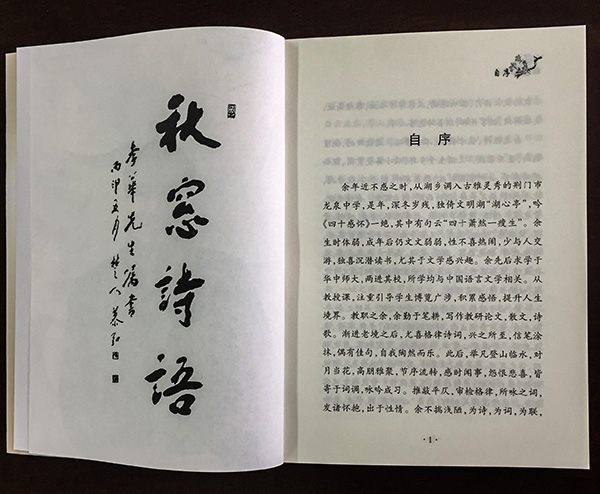 秋窓詩語
華先生属書
丙申五月
自序
自序
余年近不惑之时，从湖乡调入古雅灵秀的荆门市
龙泉中学，是年，深冬岁残，独倚文明湖“湖心亭”，吟
《四十感怀》一绝，其中有句云“四十萧然一瘦生”。余
生时体弱，成年后仍文文弱弱，性不喜热闹，少与人交
游，独喜沉潜读书，尤其于文学感兴趣。余先后求学于
华中师大，两进其校，所学均与中国语言文学相关。从
教授课，注重引导学生博览广涉，积累感悟，提升人生
境界。教职之余，余勤于笔耕，写作教研论文，散文，诗
歌。渐进老境之后，尤喜格律诗词，兴之所至，信笔涂
抹，偶有佳句，自我陶然而乐。此后，举凡登山临水，对
月当花，高朋雅聚，节序流转，感时闻事，怨恨悲喜，皆
寄于词调，咏吟成习。推敲平仄，审检格律，所咏之词，
发诸怀抱，出于性情。余不揣浅陋，为诗，为词，为联，
·1·